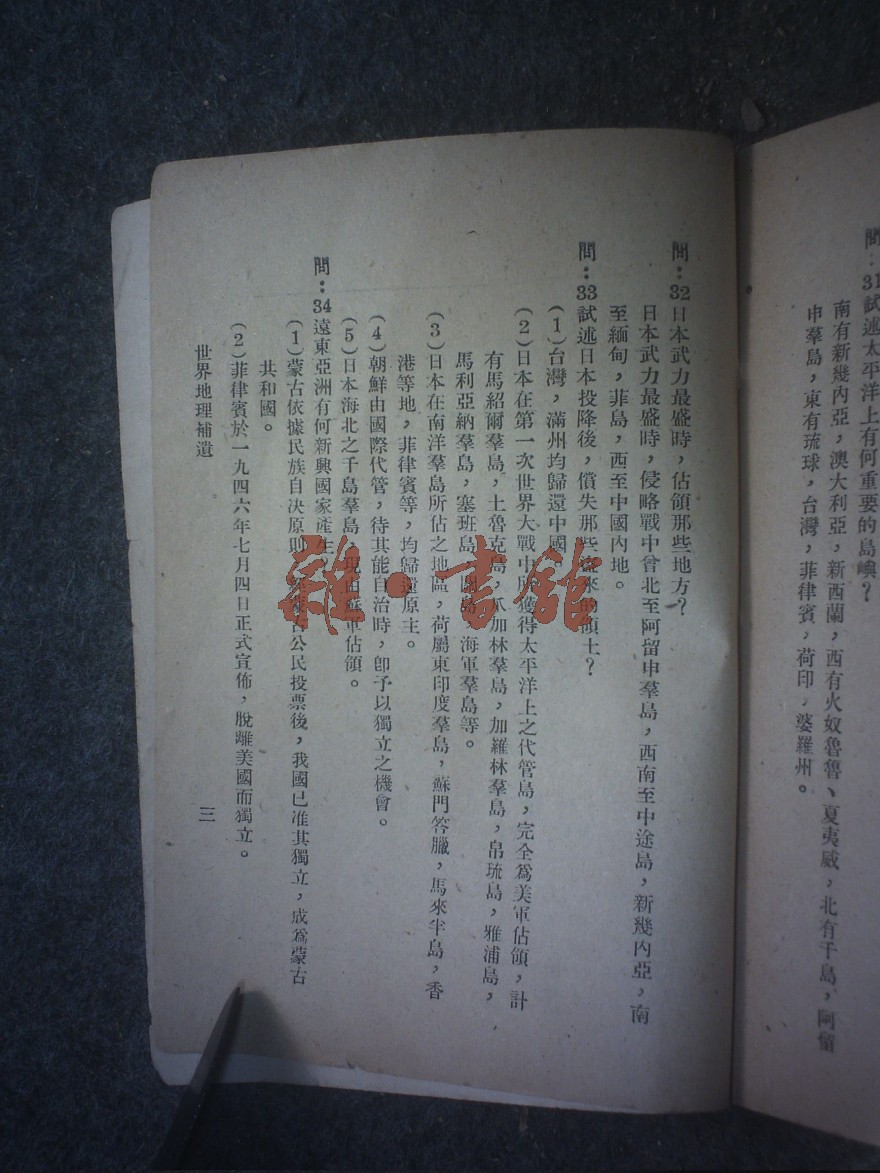 問：31試述太平洋上有何重要的島嶼？
南有新幾內亞，澳大利亞，新西蘭，西有火奴魯魯、夏夷威，北有千島，阿留
申羣島，東有琉球，台灣，菲律賓，荷印，婆羅州。
問：32日本武力最盛時，佔領那些地方？
日本武力最盛時，侵略戰中曾北至阿留申羣島，西南至中途島，新幾內亞，南
至緬甸，菲島，西至中國內地。
問：33試述日本投降後，償失那些來的領土？
(1)台灣，滿州均歸還中國
(2)日本在第一次世界大戰中所獲得太平洋上之代管島，完全爲美軍佔領，計
有馬紹爾羣島，土魯克島，爪加林羣島，加羅林羣島，帛琉島，雅浦島，
馬利亞納羣島，塞班島，關島，海軍羣島等。
(3)日本在南洋羣島所佔之地區，荷屬東印度羣島，蘇門答臘，馬來半島，香
港等地，菲律賓等，均歸還原主。
(4)朝鮮由國際代管，待其能自治時，卽予以獨立之機會。
(5)日本海北之千島羣島，現由蘇軍佔領。
問：34遠東亞洲有何新興國家產生？
(1)蒙古依據民族自決原則，蒙古公民投票後，我國已准其獨立，成爲蒙古
共和國。
(2)菲律賓於一九四六年七月四日正式宣佈，脫離美國而獨立。
世界地理補遺
三
雜書館